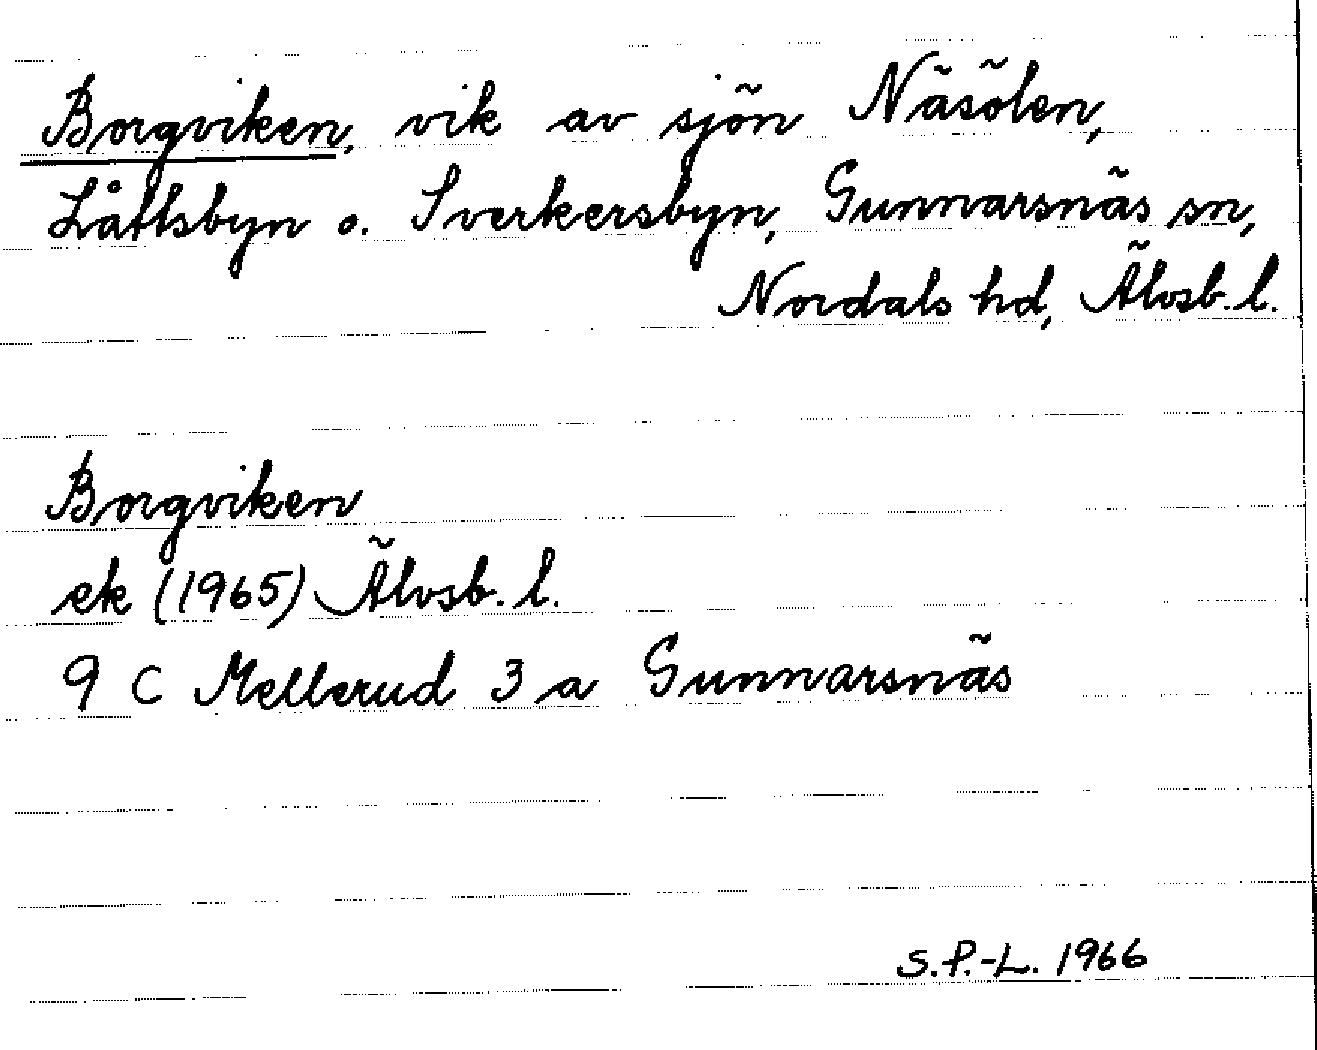 Borgviken, vik av sjön Näsölen,
Låtlsbyn o. Sverkersbyn, Gunnarsnäs sn,
Nordals hd, Älvsb. l.
Borgviken
ek (1965) Älvsb. l.
9 C Mellerud 3 a Gunnarsnäs
S.P.-L. 1966